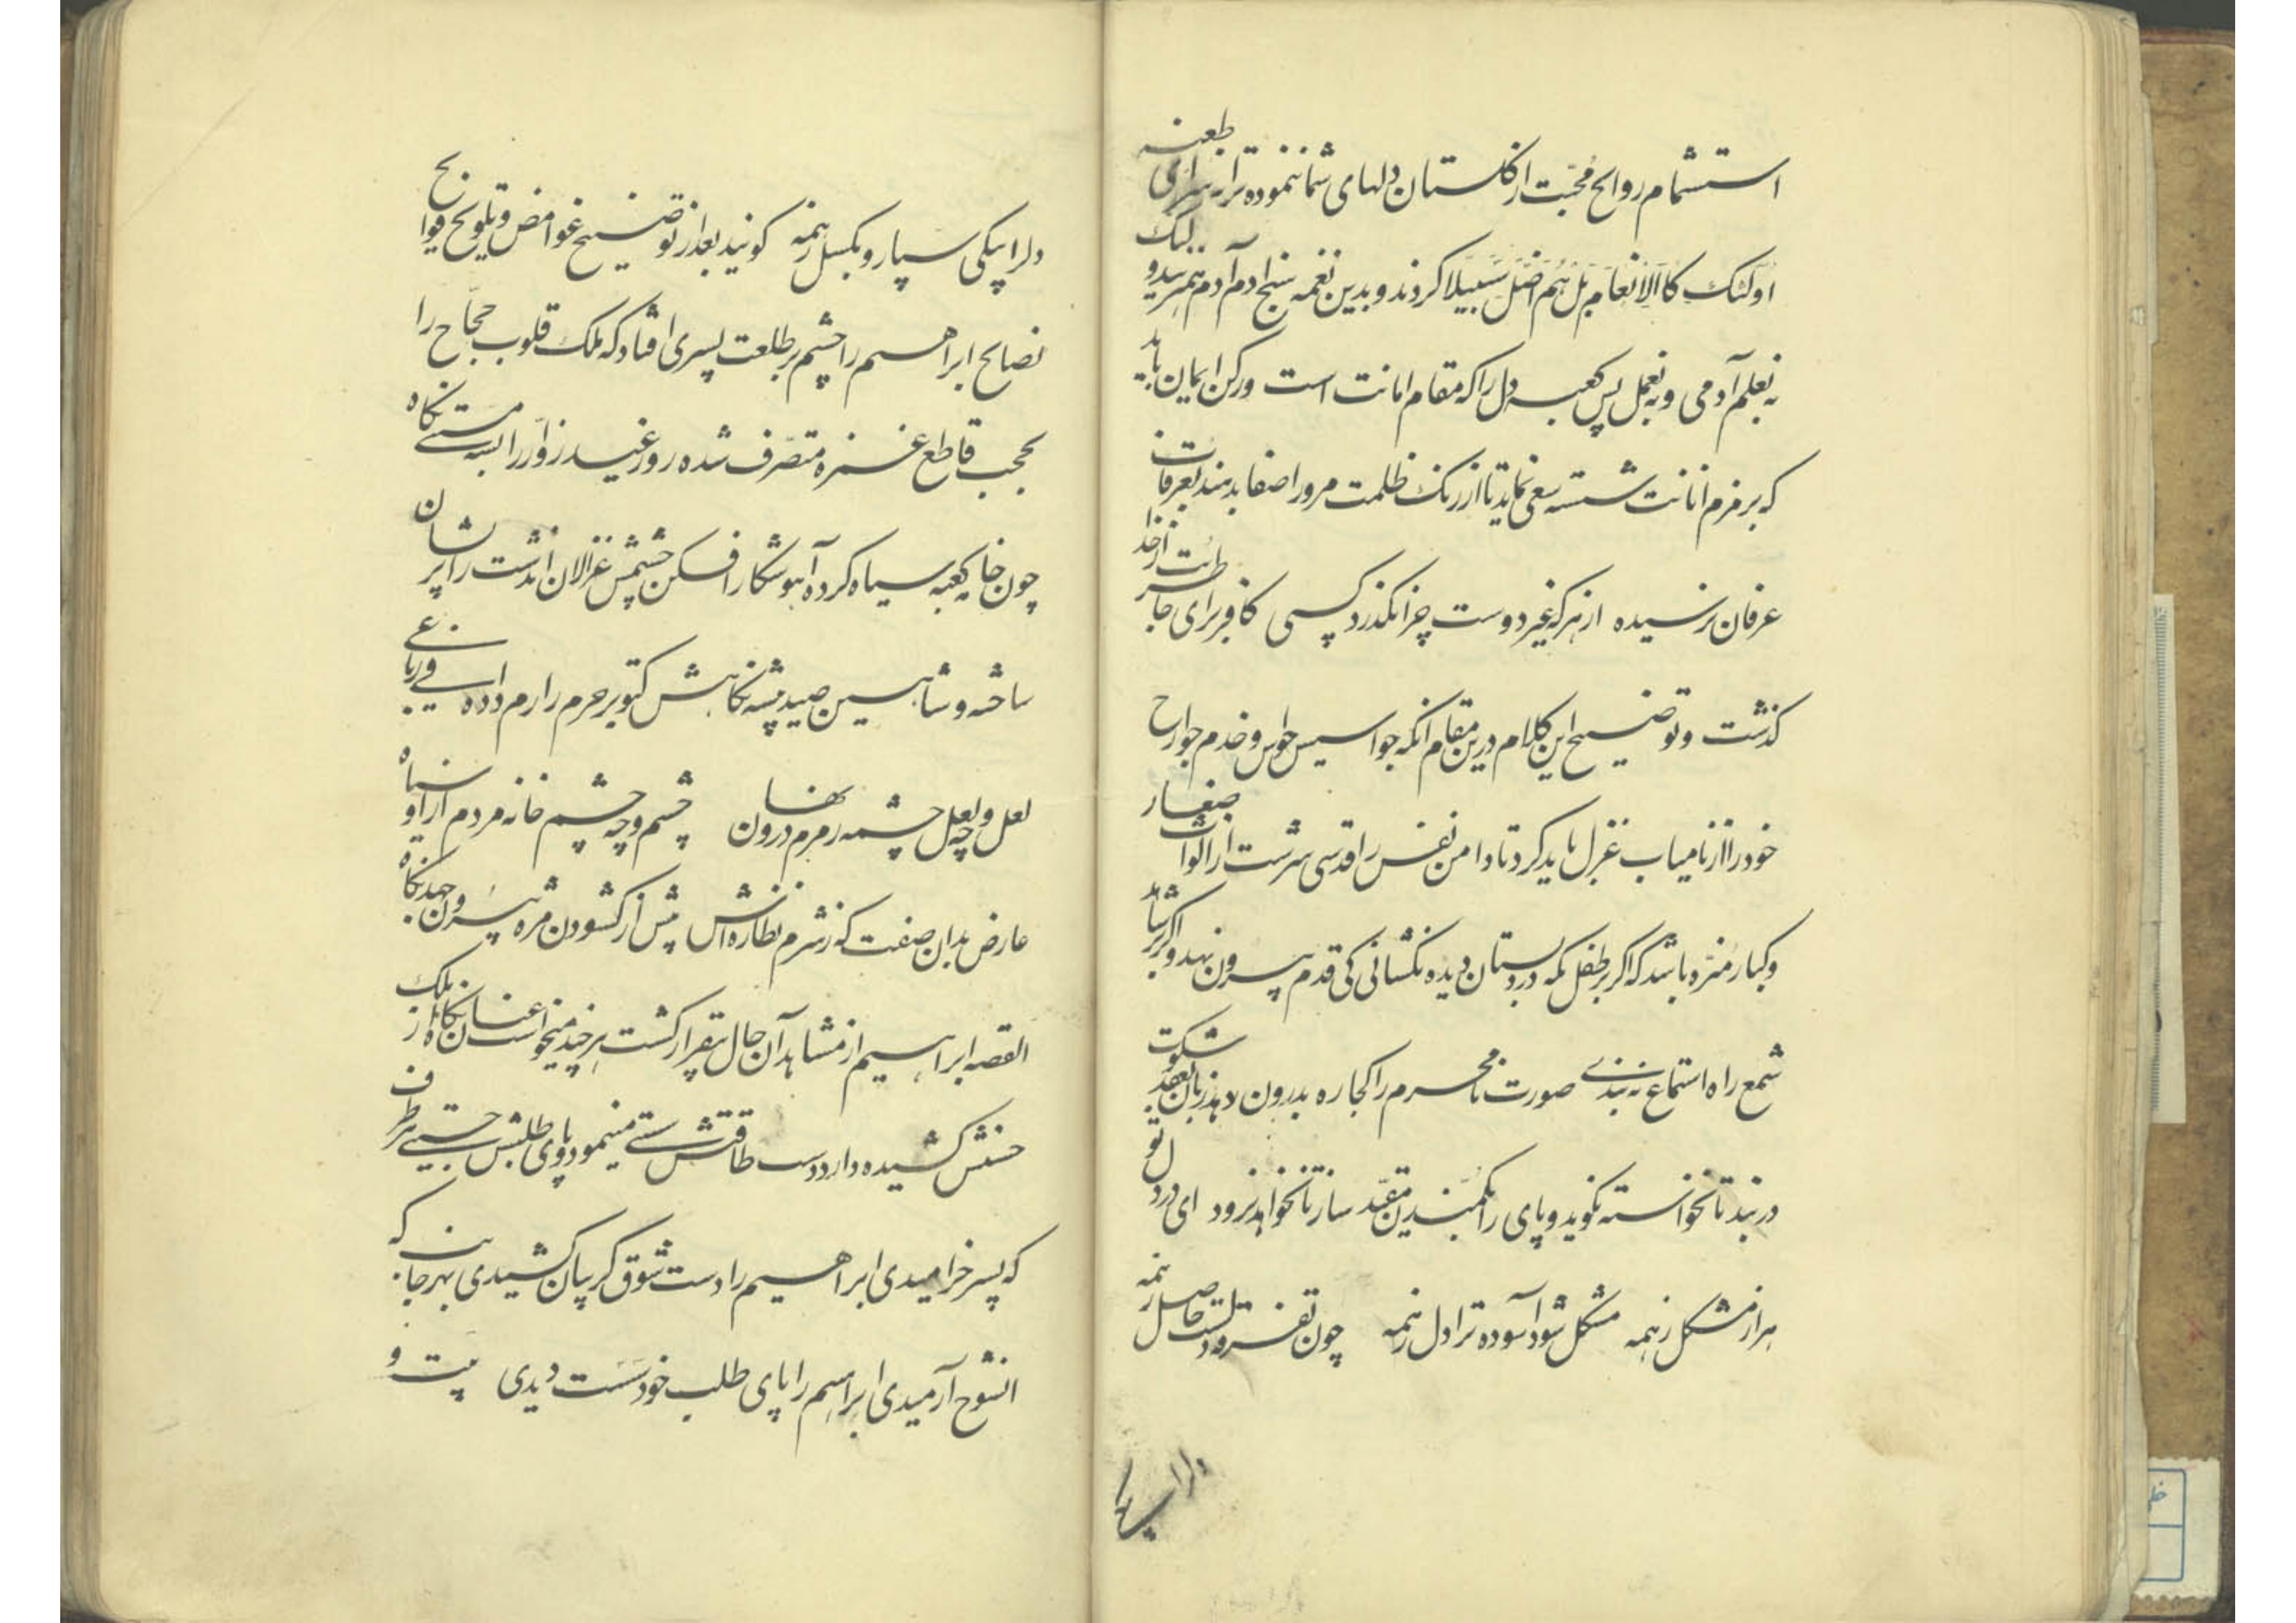 استشمام روایح محبّت از کلستان دلهای شما ننموده ترانه سرای طعنه
اولئک کالانعام بل هم اضل سبیلا کردند و بدین نغمه سنج ادم آدم همرسید و لیک
نه بعلم آدمی و نه بعمل پس کعبه دل را که مقام امانت است و رکن ایمان باید
که برمزم انانت شسته سعی نماید تا از زنک ظلمت مرور اصفا بدهند بعرفات
عرفان نرسیده از هر که غیر دوست چرا نکذرد کسی کافر برای خاطر بت از خدا
کذشت و توضیح این کلام درین مقام آنکه جواسیس حواس و خدم جوارح
خود را از نامیاب غزل باید کرد تا دامن نفس را قدسی سرشت از الواث صغار
و کبار منزه باشد که اکر بر طفل مکه در دبستان دیده نکشانی کی قدم بیرون نهد و اکر بر شاهد
شمع راه استماع نه بندے صورت نامحرم را کجا ره بدرون دهد زبان بعقد سکوت
در بند تا نخواسته نکوید و پای را بکمند تمکین مقیّد ساز تا نخواهد نرود ای در دل تو
هزار مشکل ز همه مشکل شود آسوده ترا دل ز همه چون تفرقه دلست حاصل ز همه
دلرا بیکی
دلرا بیکی سپار و بکسل ز همه کونید بعد از توضیح غوامض و تلویح فوایح
نصایح ابراهیم را چشم بر طلعت پسری افتاد که ملک قلوب حجّاج را
بحجب قاطع غمزه متصرّف شده روز عید زوّار را بسیه مستے نکاه
چون خانه کعبه سیاه کرده آهو شکار افکن چشمش غزالان اندشت را پریشان
ساخته و شاهین صید پیشه نکاهش کبوتر حرم را رم داده فے رباعے
لعل و چه لعل چشمه زمزم درون نهان چشم و چه چشم خانه مردم از او سیاه
عارض بدان صفت که ز شرم نظاره اش پیش از کشودن مژه بیرون جهد نکاه
القصه ابراهیم از مشاهد آن حال بیقرار کشت هر چند میخواست عنان نکاه از ملک
حسنش کشیده دارد دست طاقتش سستے مینمود و پای طلبش بهر طرف
که پسر خرامیدی ابراهیم را دست شوق کریبان کشیدی بهر جانب که
انشوخ آرمیدی ابراهیم را پای طلب خود سست دیدی بیت و